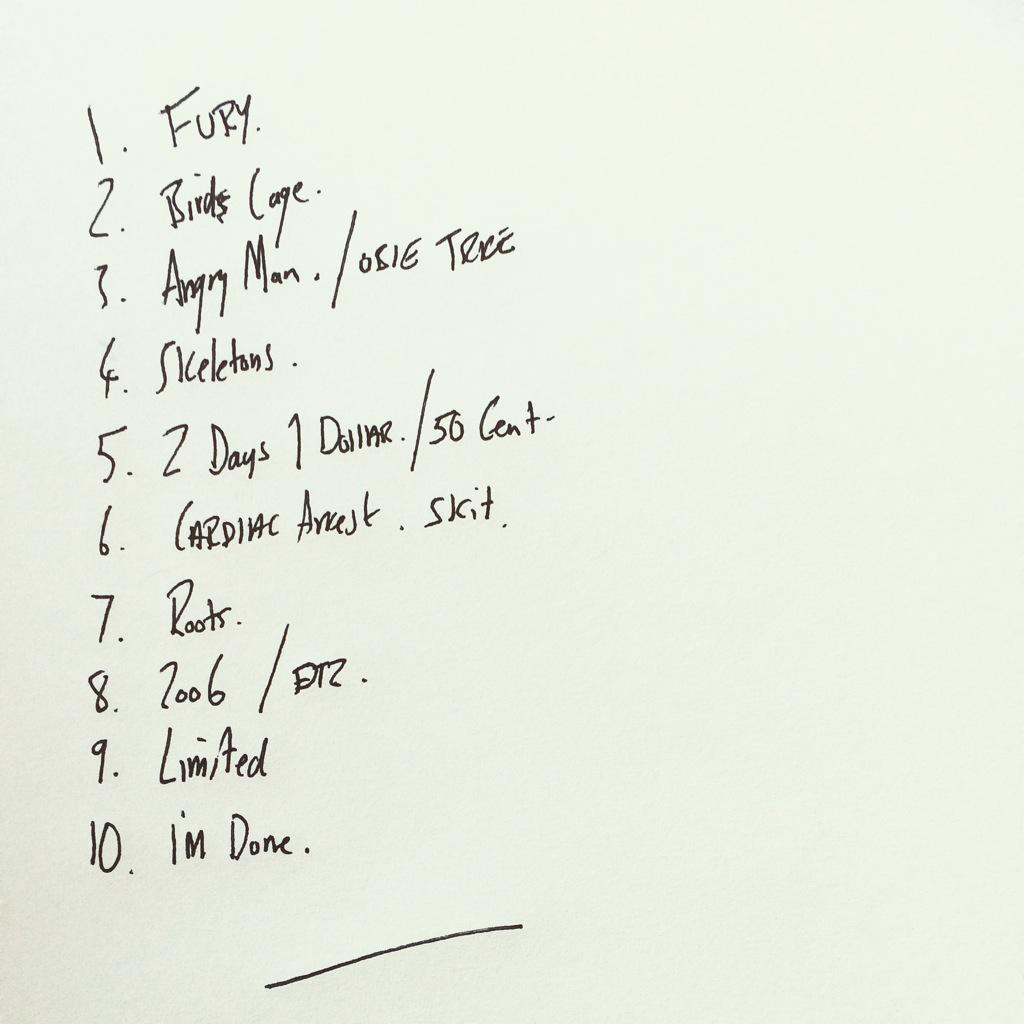 1. FURY.
2. Birds Cage.
3. Angry Man. / OBIE TRICE
4. Skeletons.
5. 2 Days 1 Dollar. / 50 Cent-
6. CARDIAC Arrest. Skit.
7. Roots.
8. 2006 /
9. Limited
10. I'm Done.